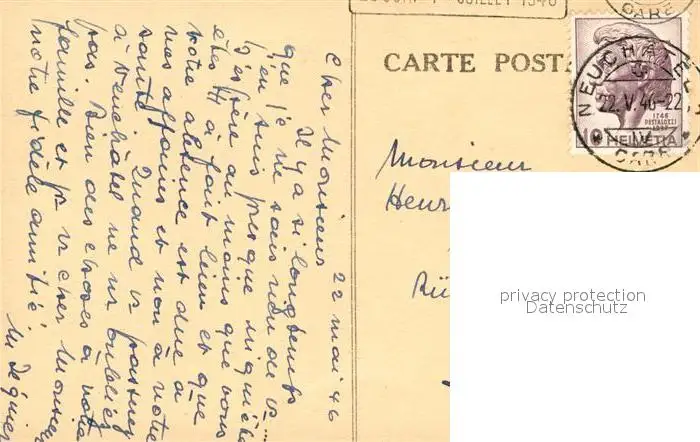 22 mai 46
Cher Monsieur
Il y a si longtemps
que je ne sais rien de v...
j'en suis presque inquiète
J'espère au moins que vous
êtes tt à fait bien et que
votre absence est due à
vos affaires et non à votre
santé. Quand v. passerez
à Neuchâtel ne ns oubliez
pas. Bien des choses à votre
famille et pr v. cher Monsieur
notre fidèle amitié.
JUILLET 1946
CARTE POSTA
NEUCHATEL
22.V.46-22
1746
PESTALOZZI
10 HELVETIA
GARE
Monsieur
Henr
Rü
privacy protection
Datenschutz